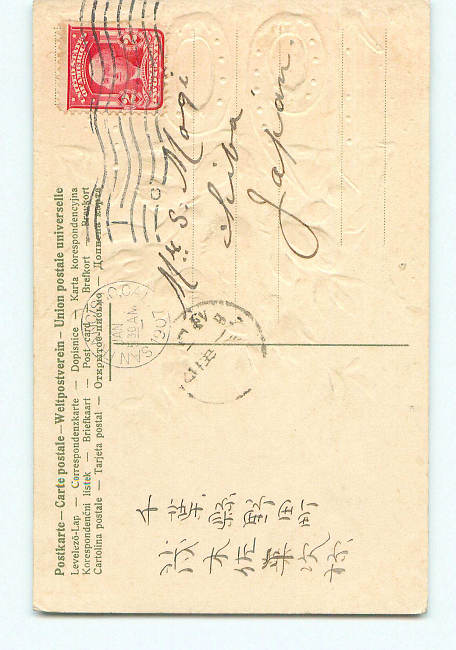 Postkarte — Carte postale — Weltpostverein — Union postale universelle
Levelező-Lap — Correspondenzkarte — Dopisnice — Karta korespondencyjna
Korespondenční lístek — Briefkaart — Post card — Brefkort — Brevkort
Cartolina postale — Tarjeta postal — Открытое письмо — Дописна карта
JAN
30 AM
1907
2
2
Mrs. Mogi
Chiba
Japan.
千葉縣野田町
茂木佐平次様